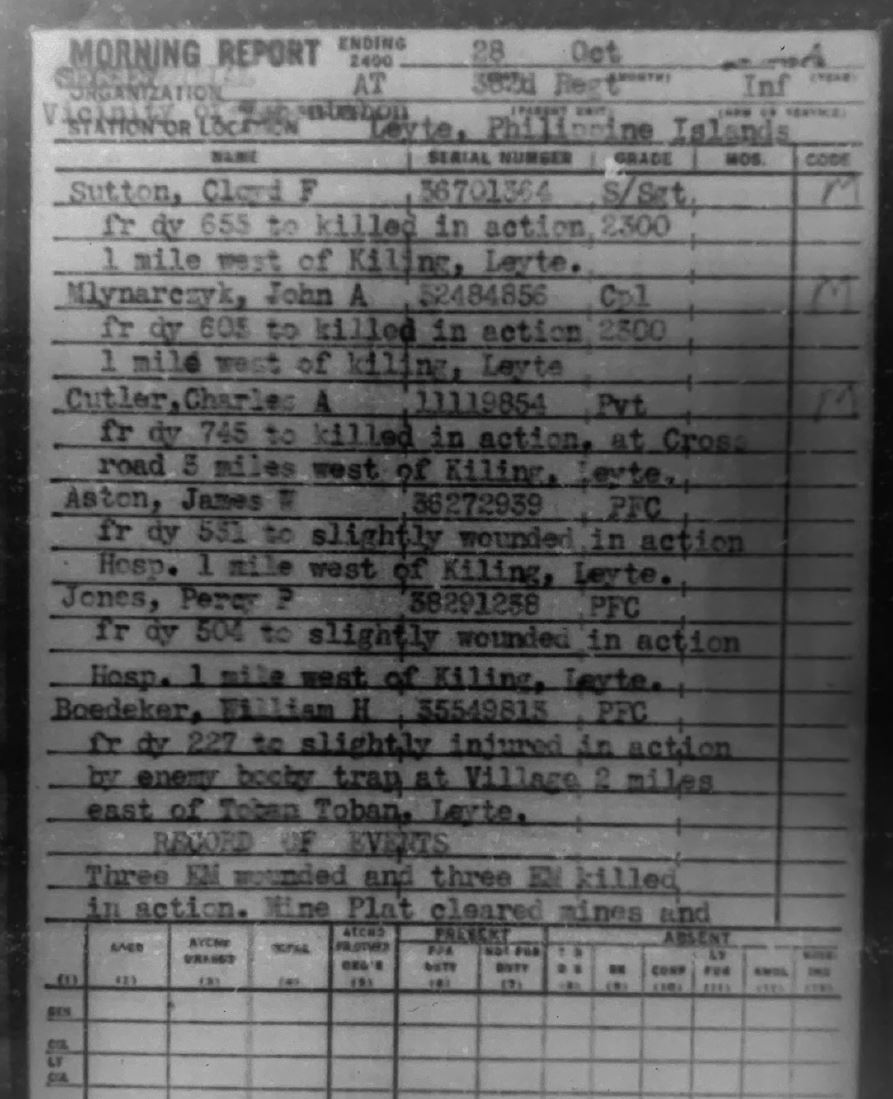 MORNING REPORT ENDING 2400 28 Oct
ORGANIZATION AT 382d Regt (MONTH) Inf (YEAR)
Vicinity of
STATION OR LOCATION Leyte, Philippine Islands
NAME SERIAL NUMBER GRADE MOS. CODE
Sutton, Cloyd F 36701364 S/Sgt. M
fr dy 653 to killed in action 2300
1 mile west of Kiling, Leyte.
Mlynarczyk, John A 32484856 Cpl M
fr dy 603 to killed in action 2300
1 mile west of kiling, Leyte
Cutler,Charles A 11119854 Pvt M
fr dy 745 to killed in action, at Cross
road 3 miles west of Kiling, Leyte.
Aston, James W 36272939 PFC
fr dy 531 to slightly wounded in action
Hosp. 1 mile west of Kiling, Leyte.
Jones, Percy P 38291238 PFC
fr dy 504 to slightly wounded in action
Hosp. 1 mile west of Kiling, Leyte.
Boedeker, William H 35549813 PFC
fr dy 227 to slightly injured in action
by enemy booby trap at Village 2 miles
east of Toban Toban, Leyte.
RECORD OF EVENTS
Three EM wounded and three EM killed
in action. Mine Plat cleared mines and
PRESENT ABSENT